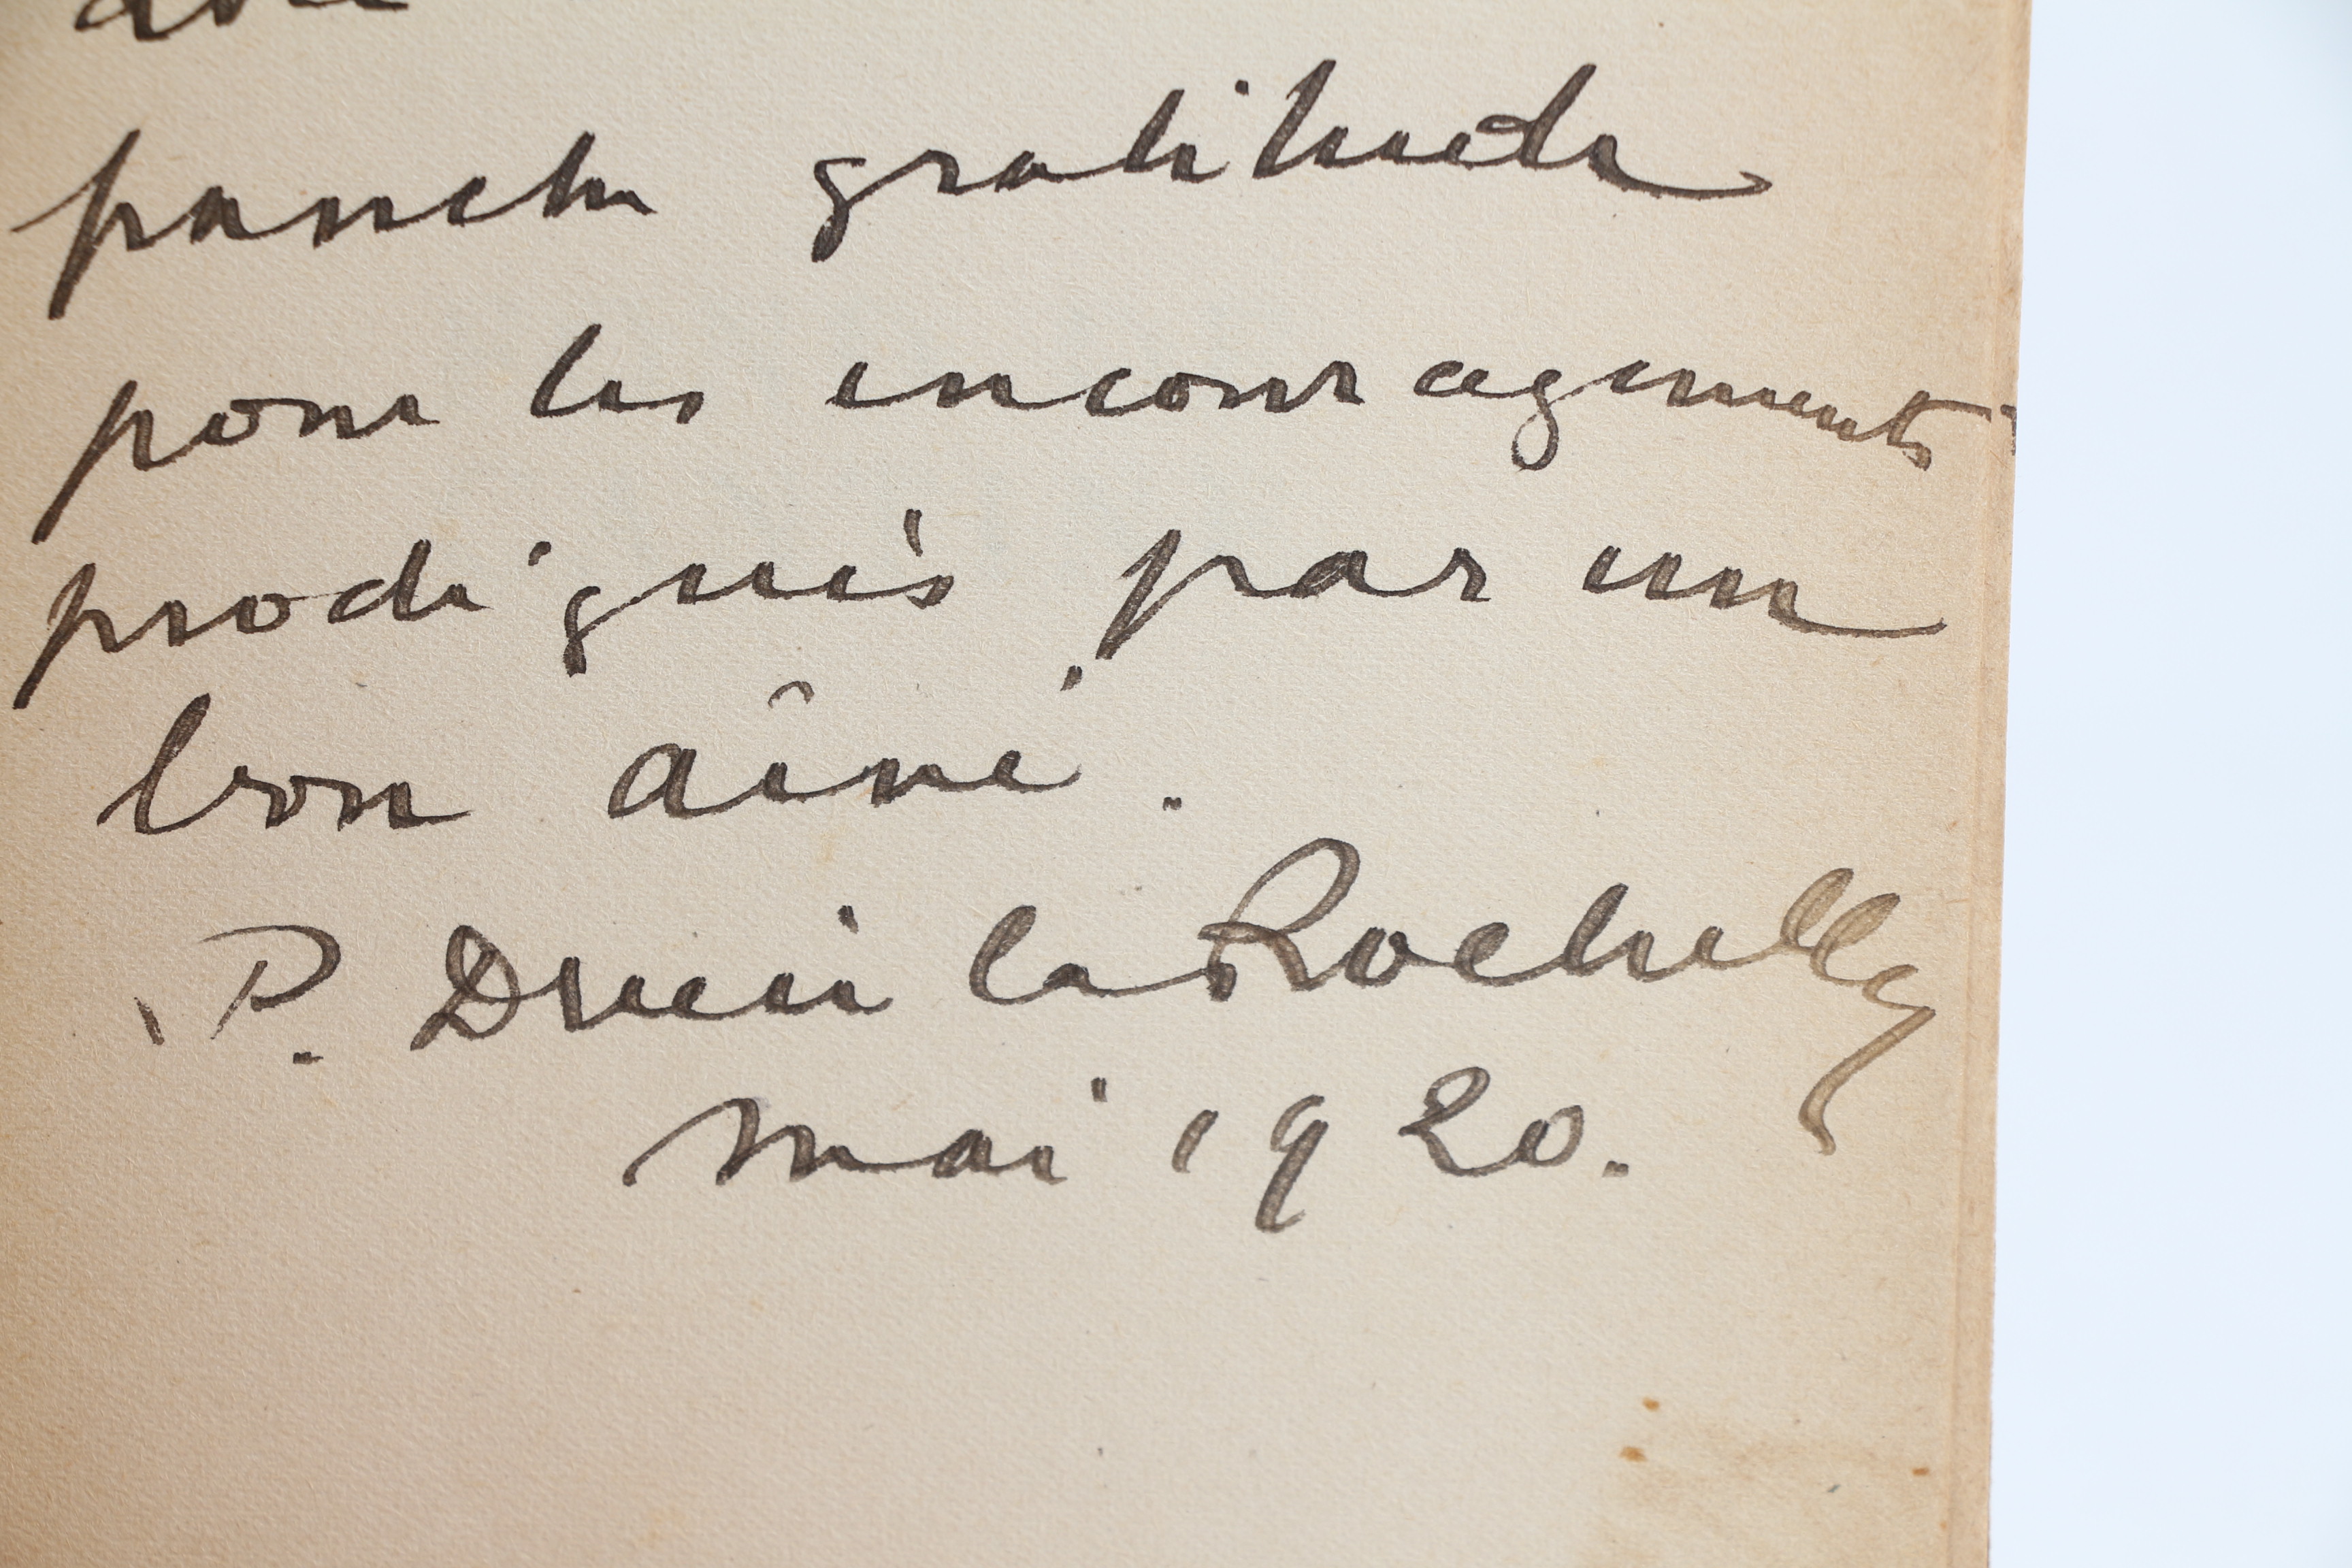 avec
franche gratitude
pour les encouragements
prodigués par un
bon aîné.
P. Drieu la Rochelle
mai 1920.